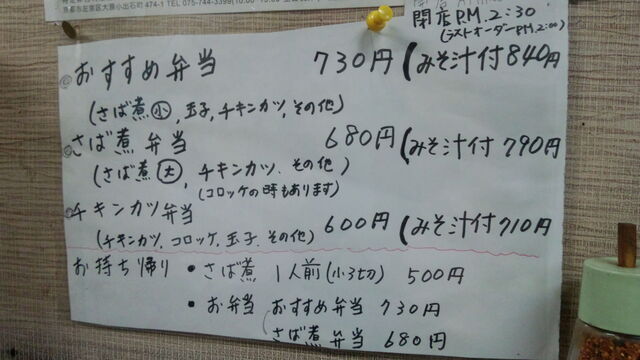 京都市左京区大原小出石町 474-1 TEL 075-744-3399
閉店 P.M. 2:30
(ラストオーダー P.M. 2:00)
◎おすすめ弁当 730円 (みそ汁付 840円
(さば煮㊙小, 玉子, チキンカツ, その他)
◎さば煮 弁当 680円 (みそ汁付 790円
(さば煮 大, チキンカツ、その他)
(コロッケの時もあります)
◎チキンカツ弁当 600円 (みそ汁付 710円
(チキンカツ, コロッケ, 玉子, その他)
お持ち帰り • さば煮 1人前 (小3切) 500円
• お弁当 おすすめ弁当 730円
さば煮 弁当 680円